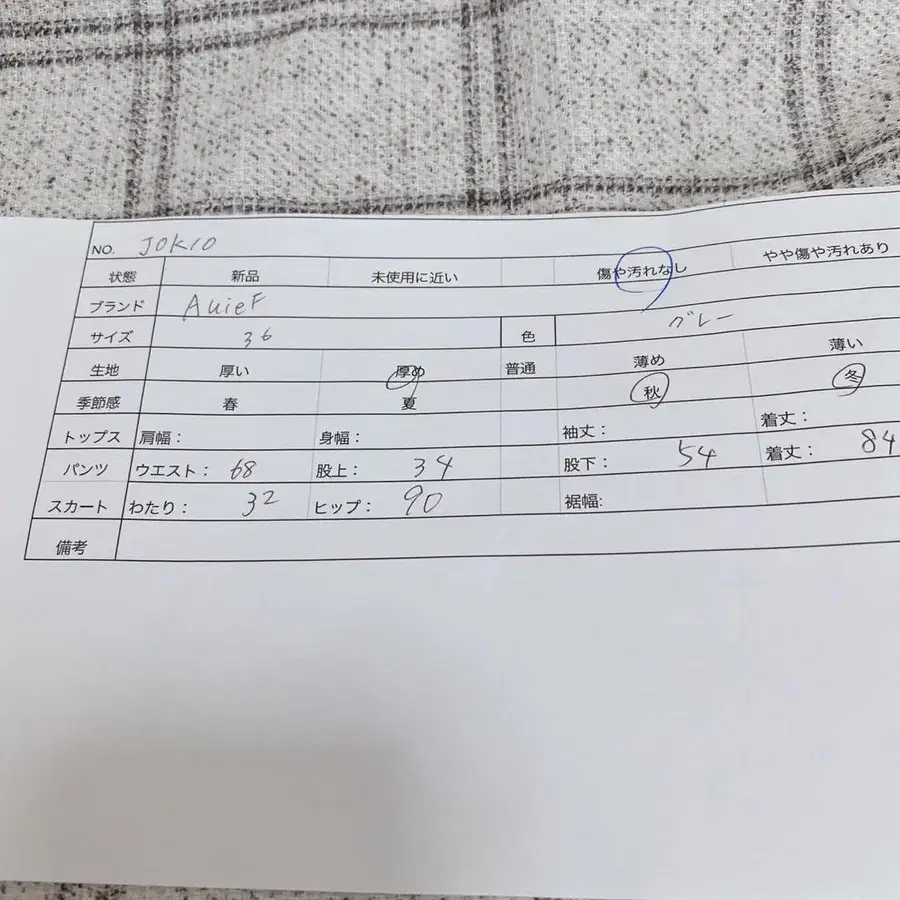 NO. JOK10
状態 新品 未使用に近い 傷や汚れなし やや傷や汚れあり
ブランド AuieF
サイズ 36 色 グレー
生地 厚い 厚め 普通 薄め 薄い
季節感 春 夏 秋 冬
トップス 肩幅： 身幅： 袖丈： 着丈：
パンツ ウエスト： 68 股上： 34 股下： 54 着丈： 84
スカート わたり： 32 ヒップ： 90 裾幅:
備考